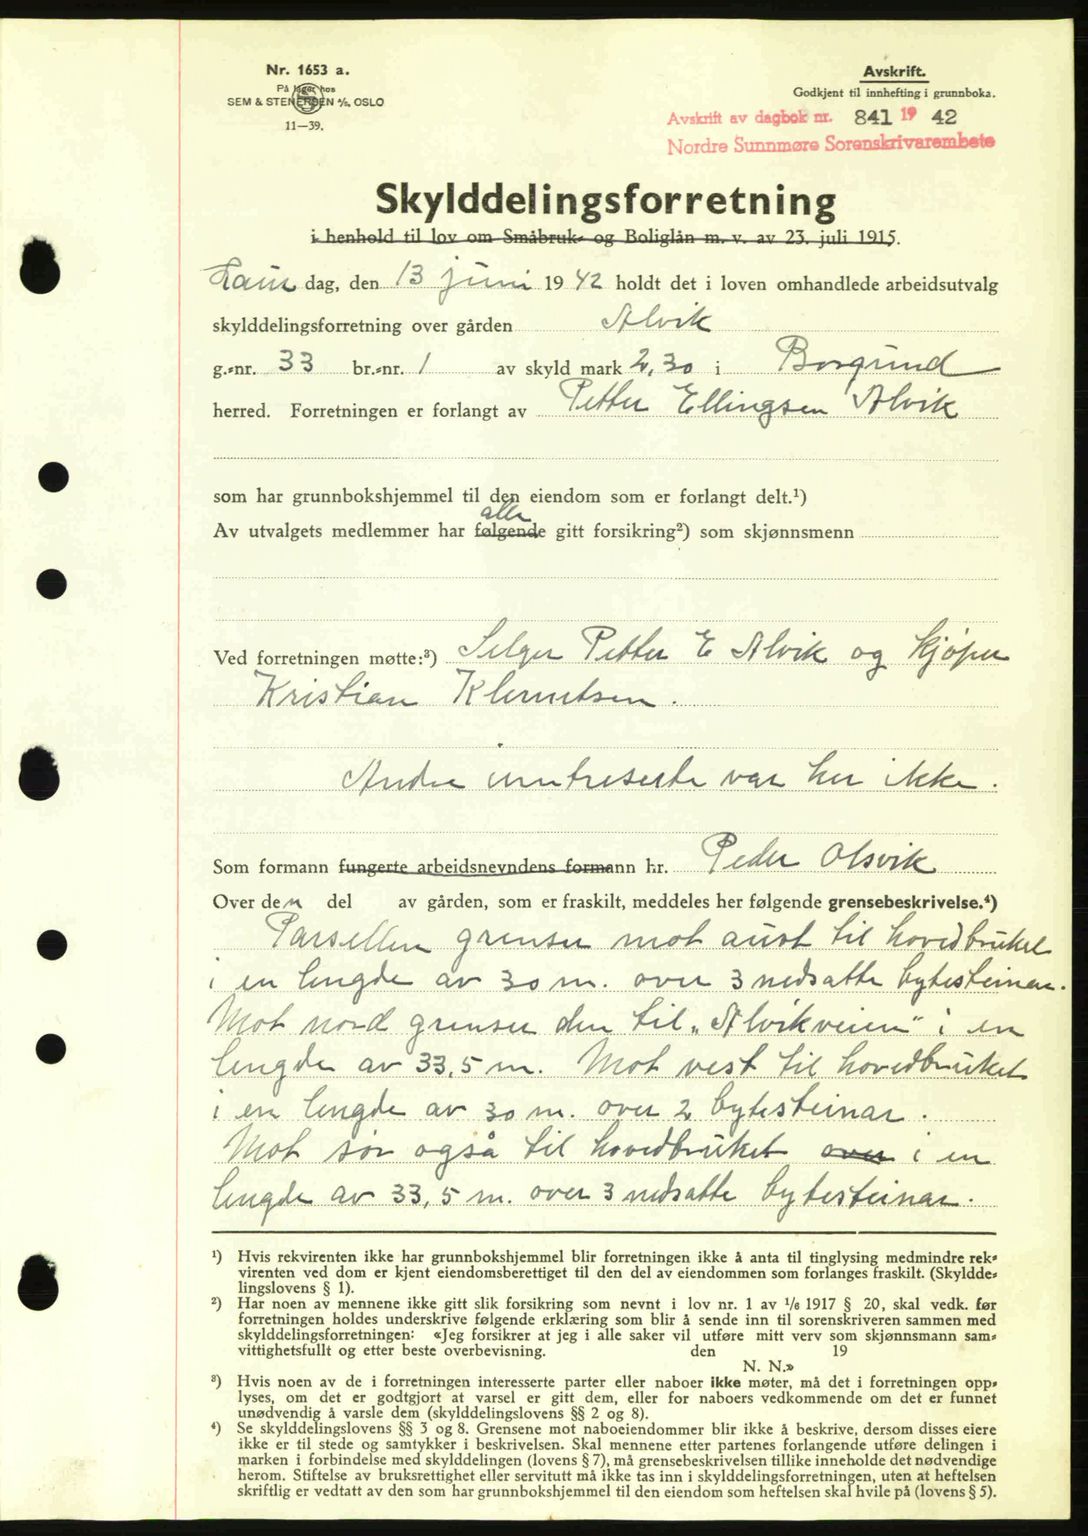 Nr. 1653 a.
På lager hos
SEM & STENERSEN A/S, OSLO
11—39.
Avskrift.
Godkjent til innhefting i grunnboka.
Avskrift av dagbok nr. 841 19 42
Nordre Sunnmøre Sorenskrivarembete
Skylddelingsforretning
i henhold til lov om Småbruk- og Boliglån m. v. av 23. juli 1915.
Laur dag, den 13 juni 19 42 holdt det i loven omhandlede arbeidsutvalg
skylddelingsforretning over gården Alvik
g.-nr. 33 br.-nr. 1 av skyld mark 2,30 i Borgund
herred. Forretningen er forlangt av Petter Ellingsen Alvik
som har grunnbokshjemmel til den eiendom som er forlangt delt.¹)
alle
Av utvalgets medlemmer har følgende gitt forsikring²) som skjønnsmenn
Ved forretningen møtte:³) Selger Petter E Alvik og kjøper
Kristian Klemetsen.
Andre inntreserte var her ikke.
Som formann fungerte arbeidsnevndens formann hr. Peder Olsvik
Over den del av gården, som er fraskilt, meddeles her følgende grensebeskrivelse.⁴)
Parsellen grenser mot aust til hovedbruket
i en lengde av 30 m. over 3 nedsatte bytesteinar.
Mot nord grenser den til „Alvikveien" i en
lengde av 33,5 m. Mot vest til hovedbruket
i en lengde av 30 m. over 2 bytesteinar.
Mot sør også til hovedbruket over i en
lengde av 33,5 m. over 3 nedsatte bytesteinar.
¹) Hvis rekvirenten ikke har grunnbokshjemmel blir forretningen ikke å anta til tinglysing medmindre rek-
virenten ved dom er kjent eiendomsberettiget til den del av eiendommen som forlanges fraskilt. (Skyldde-
lingslovens § 1).
²) Har noen av mennene ikke gitt slik forsikring som nevnt i lov nr. 1 av 1/6 1917 § 20, skal vedk. før
forretningen holdes underskrive følgende erklæring som blir å sende inn til sorenskriveren sammen med
skylddelingsforretningen: «Jeg forsikrer at jeg i alle saker vil utføre mitt verv som skjønnsmann sam-
vittighetsfullt og etter beste overbevisning. den 19
N. N.»
³) Hvis noen av de i forretningen interesserte parter eller naboer ikke møter, må det i forretningen opp-
lyses, om det er godtgjort at varsel er gitt dem, eller for naboers vedkommende om det er funnet
unødvendig å varsle dem (skylddelingslovens §§ 2 og 8).
⁴) Se skylddelingslovens §§ 3 og 8. Grensene mot naboeiendommer blir ikke å beskrive, dersom disses eiere
ikke er til stede og samtykker i beskrivelsen. Skal mennene etter partenes forlangende utføre delingen i
marken i forbindelse med skylddelingen (lovens § 7), må grensebeskrivelsen tillike inneholde det nødvendige
herom. Stiftelse av bruksrettighet eller servitutt må ikke tas inn i skylddelingsforretningen, uten at heftelsen
skriftlig er vedtatt av den som har grunnbokshjemmel til den eiendom som heftelsen skal hvile på (lovens § 5).